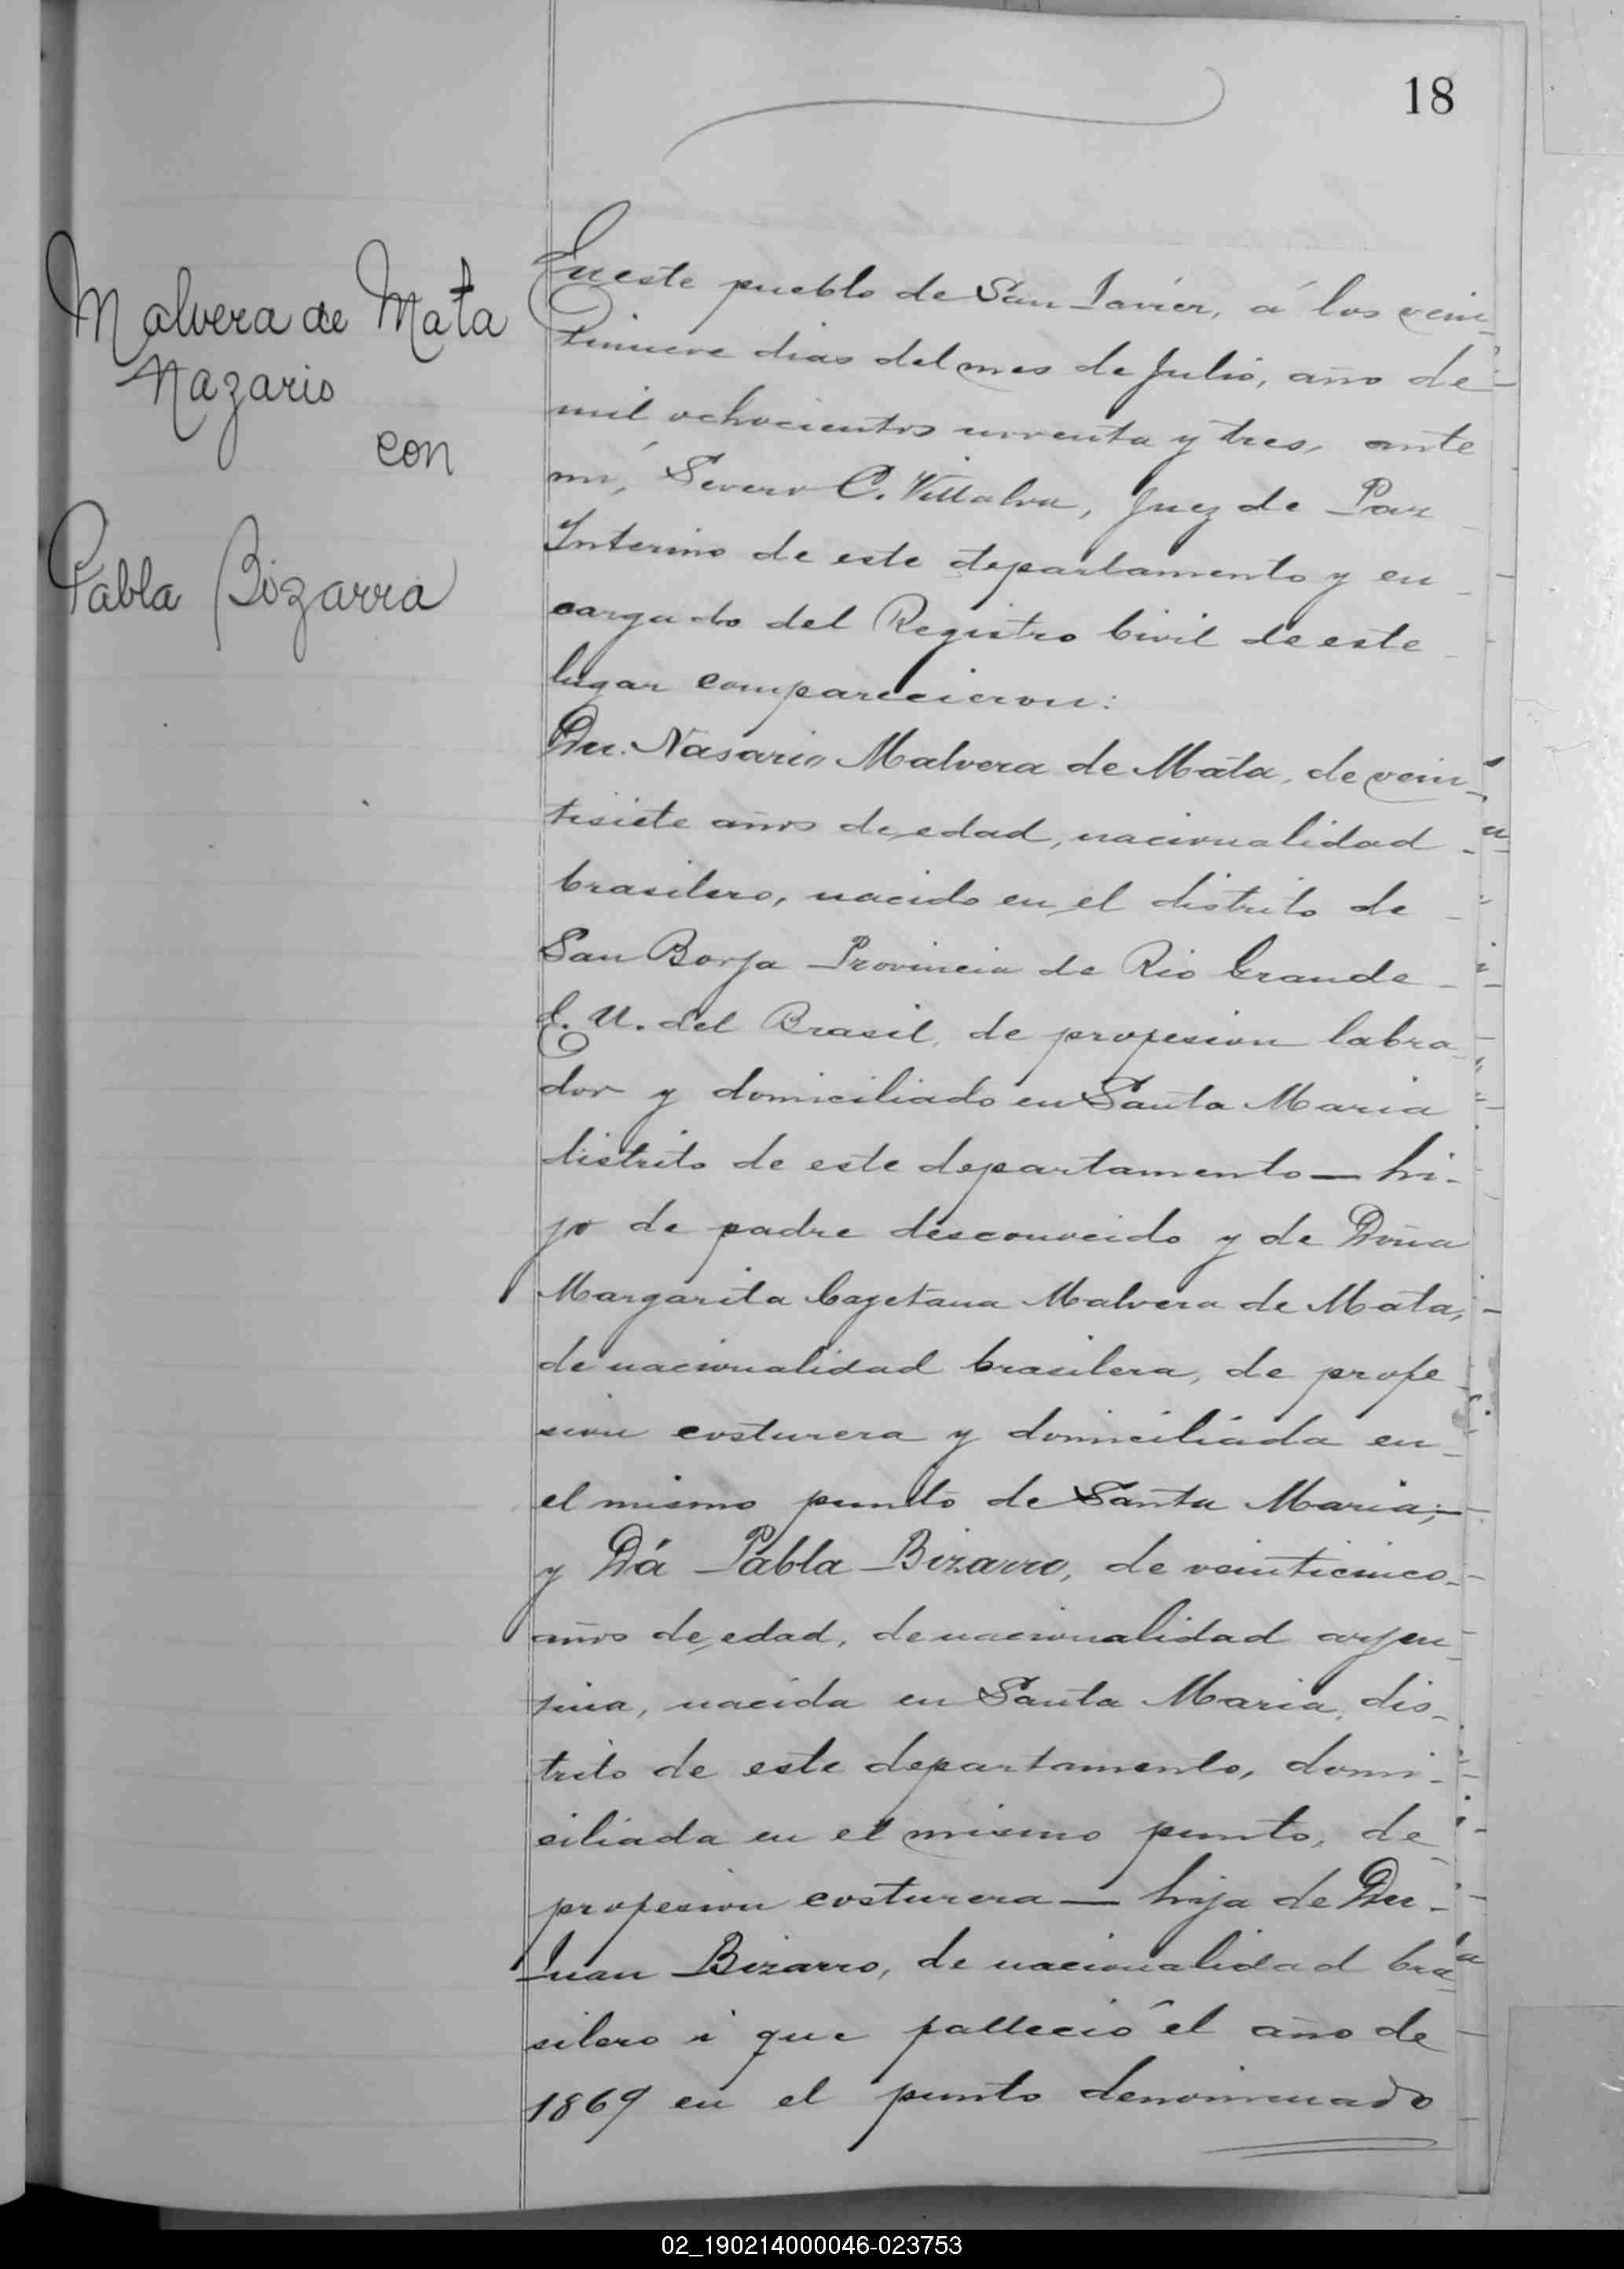 18
Malvera de Mata
Nazario
con
Pabla Bizarra
En este pueblo de San Javier, á los vein
tinueve dias del mes de Julio, año de
mil ochocientos noventa y tres, ante
mi, Severo C. Villalva, Juez de Paz
Interino de este departamento y en
cargado del Registro Civil de este
lugar comparecieron:
Dn. Nasario Malvera de Mata, de vein-
tisiete años de edad, nacionalidad
brasilero, nacido en el distrito de
San Borja Provincia de Rio Grande
E. U. del Brasil, de profesion labra
dor y domiciliado en Santa Maria
distrito de este departamento — hi-
jo de padre desconocido y de Doña
Margarita Cayetana Malvera de Mata,
de nacionalidad brasilera, de profe
sion costurera y domiciliada en
el mismo punto de Santa Maria; —
y Dá Pabla Bizarro, de veinticinco
años de edad, de nacionalidad arjen
tina, nacida en Santa Maria, dis-
trito de este departamento, domi-
ciliada en el mismo punto, de
profesion costurera — hija de Dn
Juan Bizarro, de nacionalidad bra
silero i que falleció el año de
1869 en el punto denominado
02_190214000046-023753